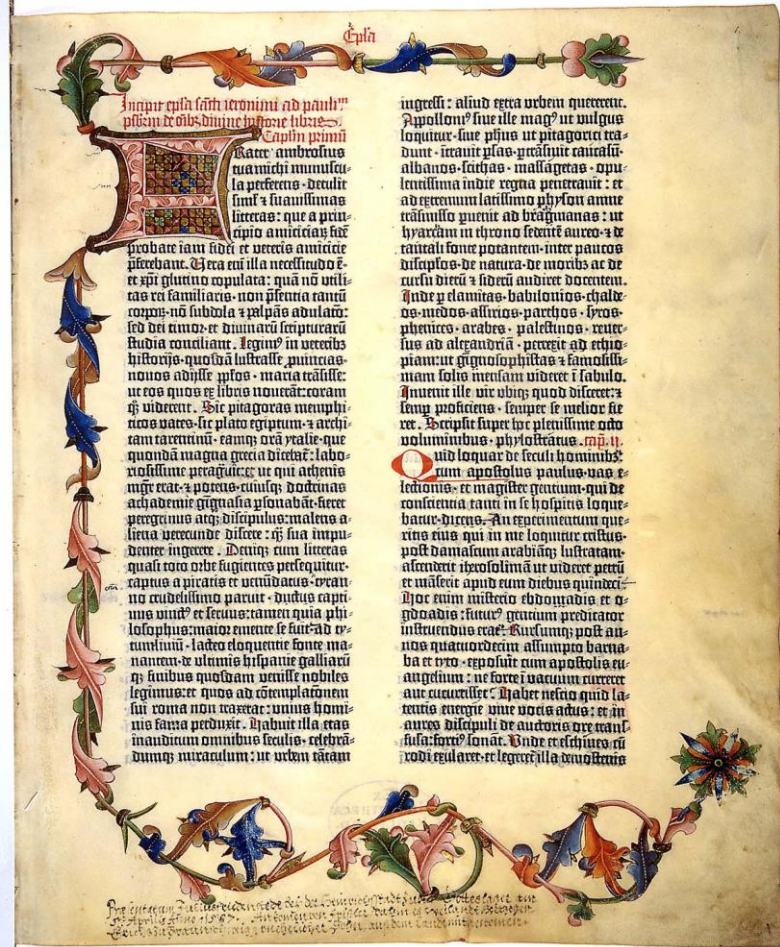 Epla
Incipit epla sancti ieronimi ad paulinum
presbiterum de omnibus divine historie libris
Caplm primu
Frater ambrosius
tua michi munuscu-
la perferens· detulit
siml' et suavissimas
litteras: que a prin-
cipio amiciciar fide
probate iam fidei et veteris amicicie
pferebant. Vera eni illa necessitudo e·
et xpi glutino copulata: qua no utili-
tas rei familiaris· no psentia tantu
corporz· no subdola et palpas adulaco:
sed dei timor· et divinaru scripturaru
studia conciliant. Legim9 in veterib3
historijs· quosda lustrasse puincias·
novos adijsse pplos· maria trasisse:
ut eos quos ex libris noverat: coram
q3 viderent. Sic pitagoras memphi-
ticos vates· sic plato egiptum· et archi-
tam tarentinu· eamq3 ora ytalie· que
quonda magna grecia dicebat: labo-
riosissime peragvit: et ut qui athenis
mgr erat· et potens· cuiusq3 doctrinas
achademie gignasia psonabat· fieret
peregrinus atq3 discipulus: malens a-
liena verecunde discere: q3 sua impu-
denter ingerere. Deniq3 cum litteras
quasi toto orbe fugientes persequitur·
captus a piratis et venudatus· tyran-
no crudelissimo paruit· ductus capti-
vus vinct9 et servus: tamen quia phi-
losophus: maior emente se fuit· Ad ty-
tumliviu· lacteo eloquentie fonte ma-
nantem· de ultimis hispanie galliaru
q3 finibus quosdam venisse nobiles
legimus: et quos ad cotemplatonem
sui roma non traxerat: unius homi-
nis fama perduxit. Habuit illa etas
inauditum omnibus seculis· celebra-
dumq3 miraculum: ut urbem tatam
ingressi: aliud extra urbem quererent.
Appolloni9 sive ille mag9 ut vulgus
loquitur· sive phus ut pitagorici tra-
dunt· itravit psas· ptrasivit caucasu·
albanos· scithas· massagetas· opu-
lentissima indie regna penetravit: et
ad extremum latissimo physon amne
trasmisso pvenit ad bragmanas: ut
hyarcam in throno sedete aureo· et de
tantali fonte potantem· inter paucos
discipulos· de natura· de moribz ac de
cursu dieru et sideru audiret docentem.
Inde p elamitas· babilonios· chalde-
os· medos· assirios· parthos· syros·
phenices· arabes· palestinos· rever-
sus ad alexandria· perrexit ad ethio-
piam: ut gignosophistas et famosissi-
mam solis mensam videret i sabulo.
Invenit ille vir ubiq3 quod disceret: et
semp proficiens· semper se melior fie-
ret. Scripsit super hoc plenissime octo
voluminibus· phylostratus. cap. ii.
Quid loquar de seculi hominib3·
cum apostolus paulus· vas e-
lectionis· et magister gentium· qui de
conscientia tanti in se hospitis loque-
batur· dicens. An experimentum que-
ritis eius qui in me loquitur cristus·
Post damascum arabiaq3 lustratam·
ascenderit iherosolima ut videret petru
et maserit apud eum diebus quindeci·
Hoc enim misterio ebdomadis et o-
gdoadis: futur9 gentium predicator
instruendus erat. Rursumq3 post an-
nos quatuordecim assumpto barna-
ba et tyto· exposuit cum apostolis eu-
angelium: ne forte i vacuum curreret
aut cucurrisset. Habet nescio quid la-
tentis energie vive vocis actus: et in
aures discipuli de auctoris ore trans-
fusa: forti9 sonat. Unde et eschines cu
rodi exularet· et legeret illa demostenis